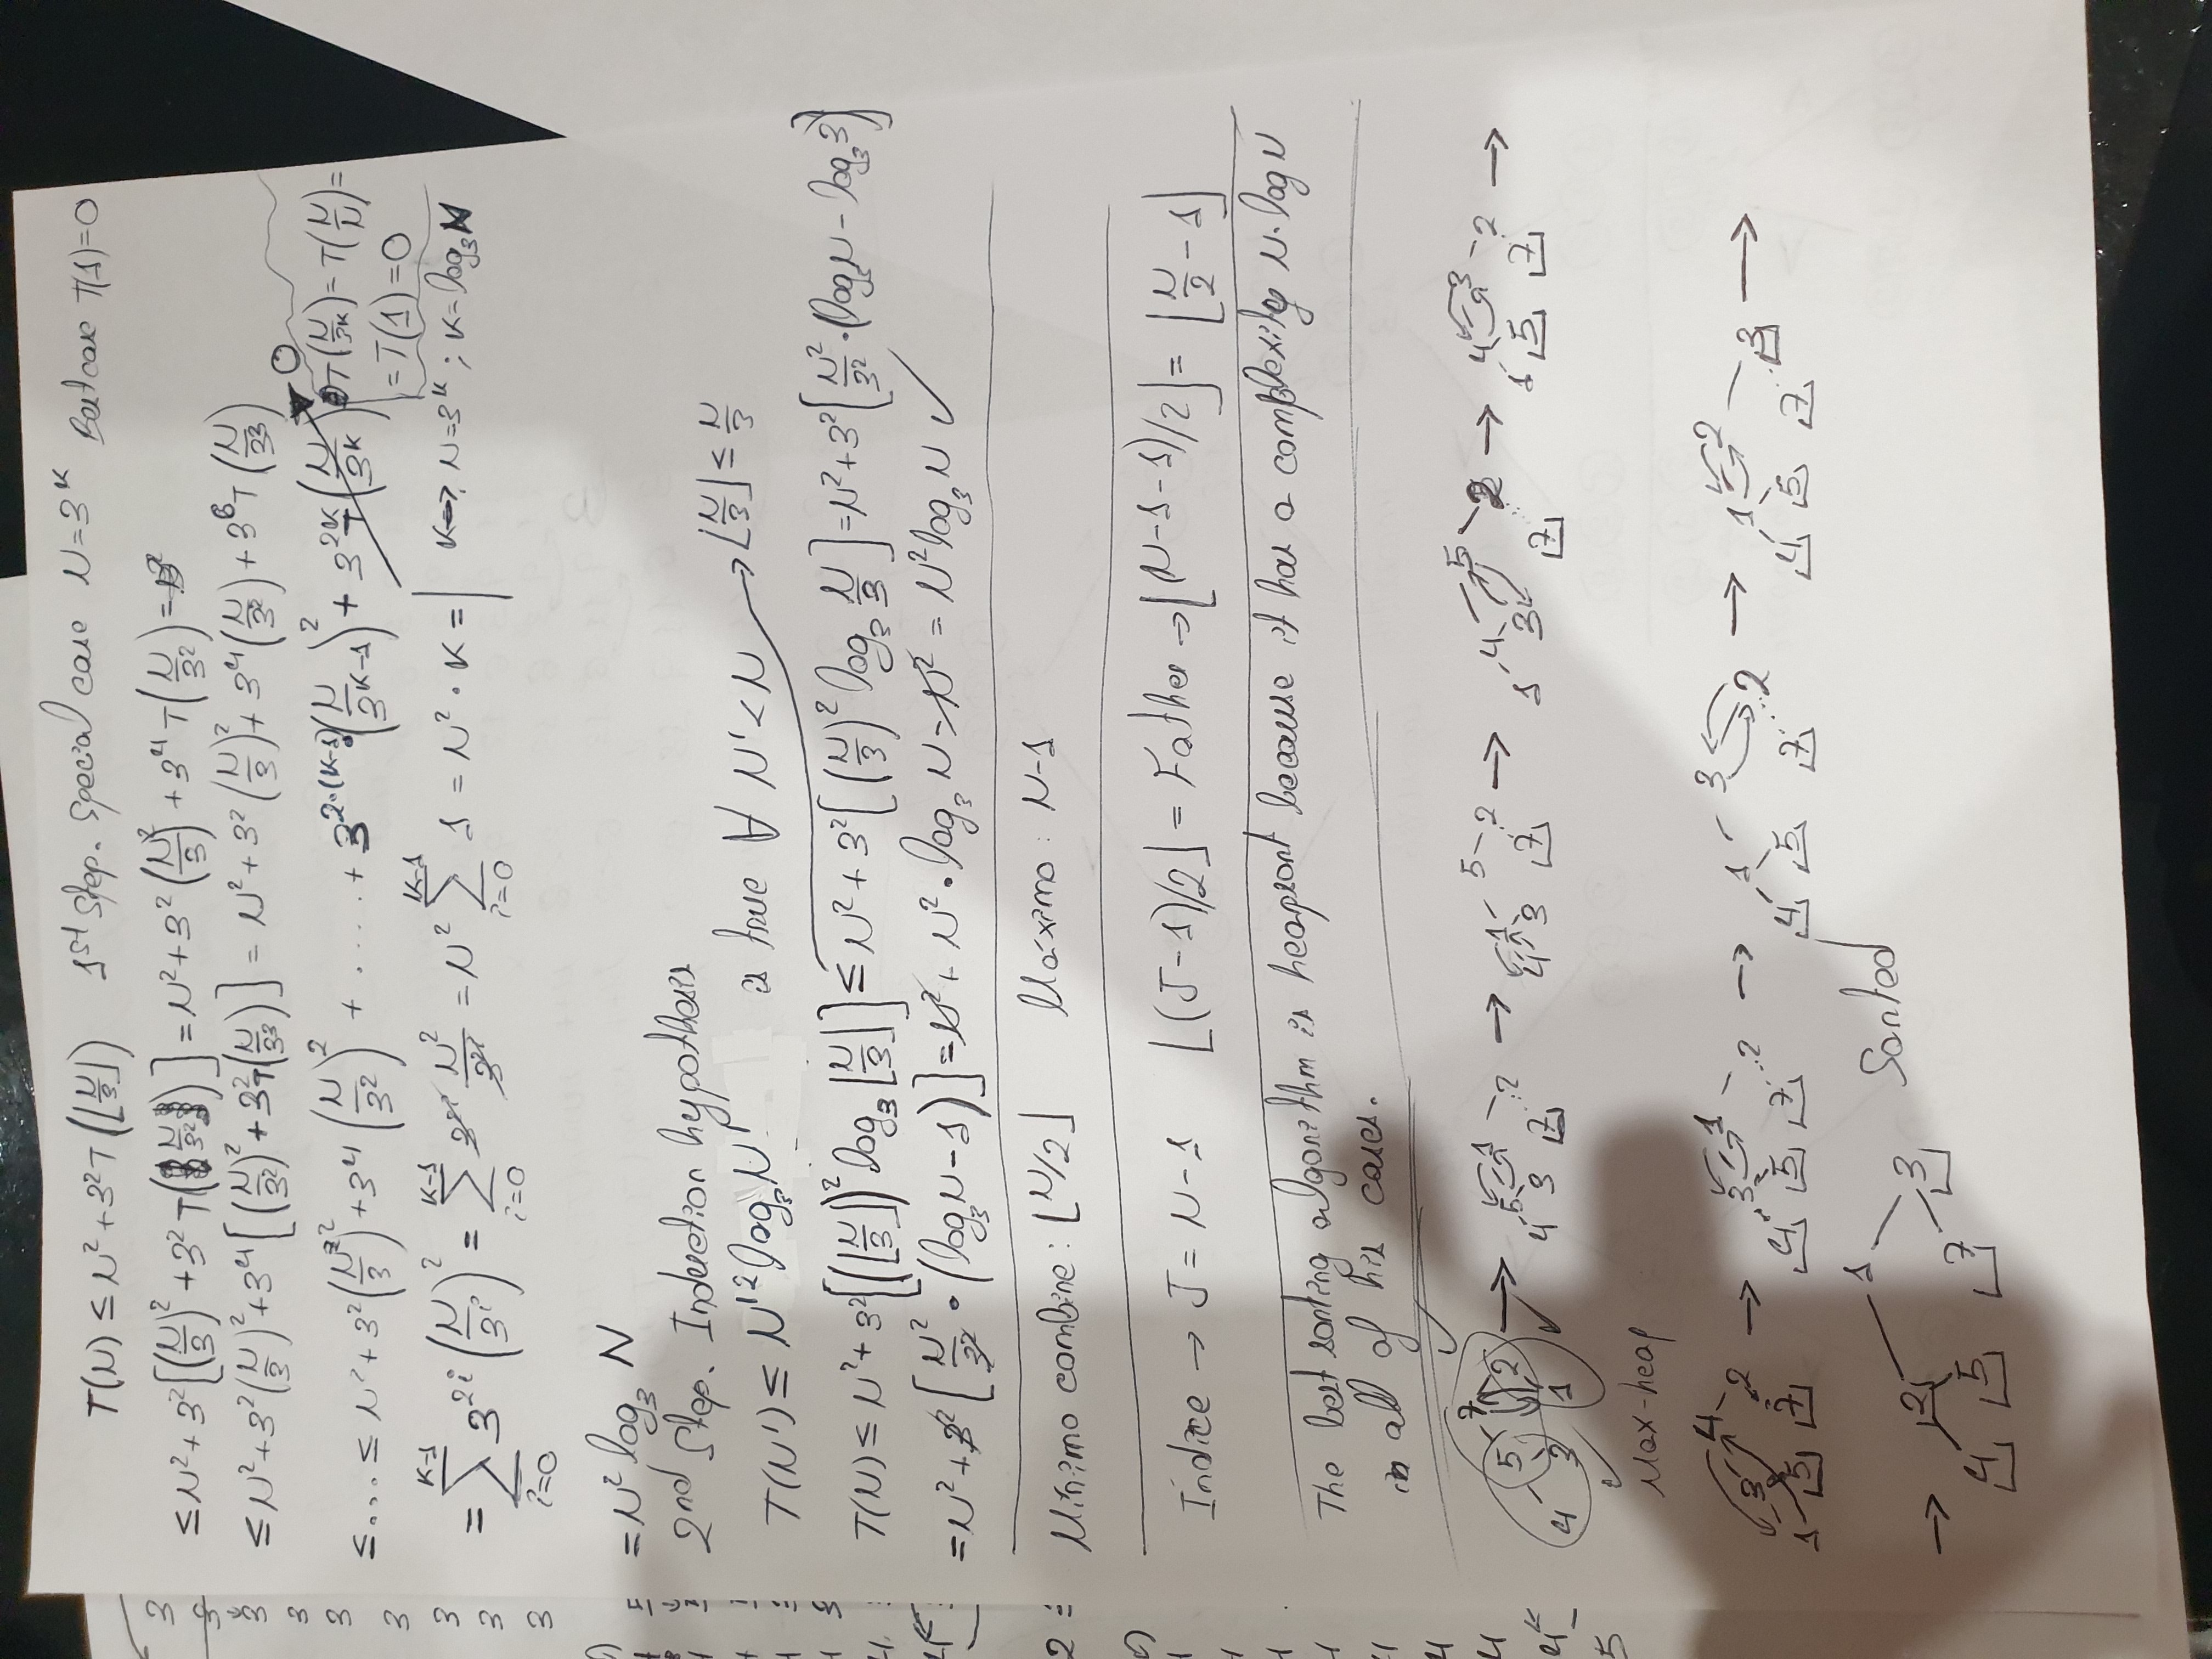 T(N) ≤ N² + 3² T(⌊N/3⌋) 1st Step. Special case N = 3^K Best case T(1) = 0
≤ N² + 3² [(N/3)² + 3² T(N/3²)] = N² + 3² (N/3)² + 3⁴ T(N/3²) =
≤ N² + 3² (N/3)² + 3⁴ [(N/3²)² + 3² T(N/3³)] = N² + 3² (N/3)² + 3⁴ (N/3²) + 3⁶ T(N/3³)
≤ ... ≤ N² + 3² (N/3)² + 3⁴ (N/3²)² + ..... + 3^(2·(K-1)) · (N/3^(K-1))² + 3^(2K) T(N/3^K) → 0
T(N/3^K) = T(N/N) =
= T(1) = 0
= ∑_{i=0}^{K-1} 3^(2i) (N/3^i)² = ∑_{i=0}^{K-1} 3^(2i) N²/3^(2i) = N² ∑_{i=0}^{K-1} 1 = N² · K = | K → N = 3^K ; K = log₃N
= N² log₃ N
2nd Step. Induction hypothesis
T(N') ≤ N'² log₃ N' is true ∀ N' < N → ⌊N/3⌋ ≤ N/3
T(N) ≤ N² + 3² [(⌊N/3⌋)² log₃ ⌊N/3⌋] ≤ N² + 3² [(N/3)² log₃ N/3] = N² + 3² [N²/3² · (log₃N - log₃3)]
= N² + 3² [N²/3² · (log₃N - 1)] = N² + N² · log₃ N - N² = N² log₃ N ✓
Mínimo combine: ⌊N/2⌋ Máximo: N-1
Indice → J = N-1 ⌊(J-1)/2⌋ = Father → ⌊(N-1-1)/2⌋ = ⌊N/2 - 1⌋
The best sorting algorithm is heapsort because it has a complexity N·log N
in all of his cases.
7 → 1 → 5 2 → 5 → 3 →
5 2 5 2 1 4 2 4 2
4 3 1 4 3 7 4 3 7 1 3 7 1 5 7
Max-heap
4 → 1 → 3 → 2 →
3 2 3 2 1 2 1 3
1 5 7 4 5 7 4 5 7 4 5 7
1 Sorted
→ 2 3
4 5 7